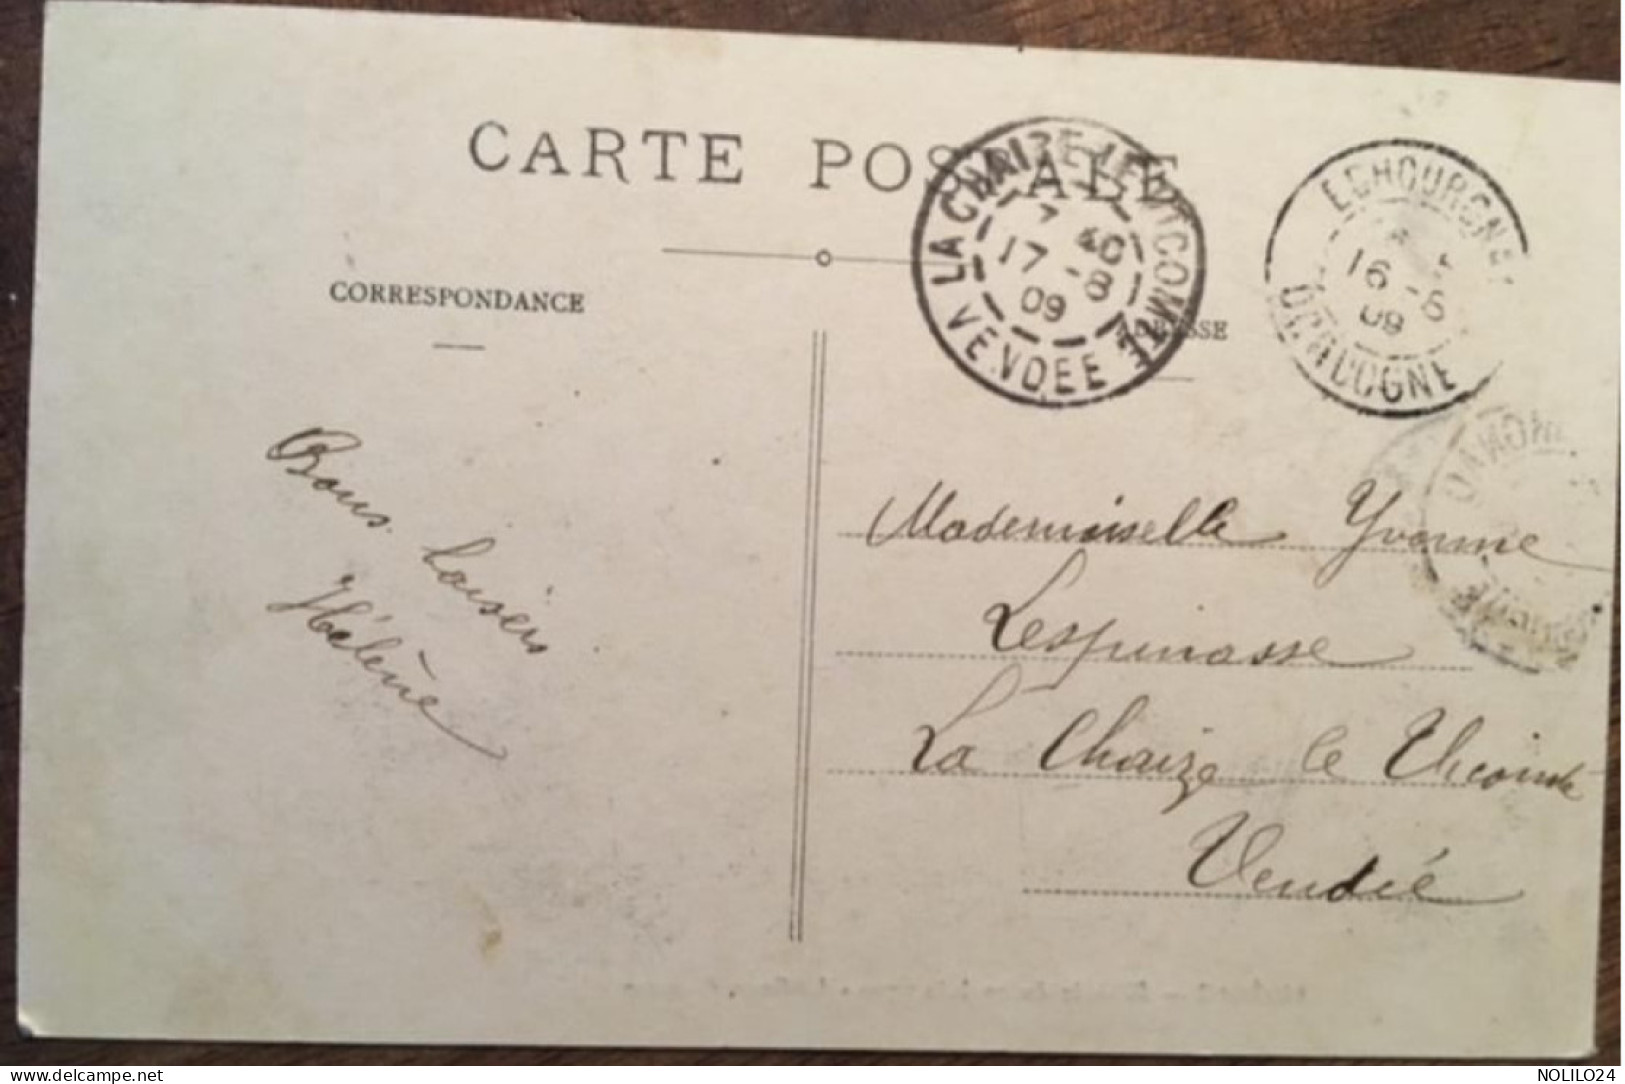 CARTE POSTALE
CORRESPONDANCE
ADRESSE
LA CHAIZE-LE-VICOMTE
7 40
17 -8
09
VENDEE
ECHOURGNAC
16 -8
09
DORDOGNE
Bons baisers
Hélène
Mademoiselle Yvonne
Lespinasse
La Chaize le Vicomte
Vendée
delcampe.net
NOLILO24